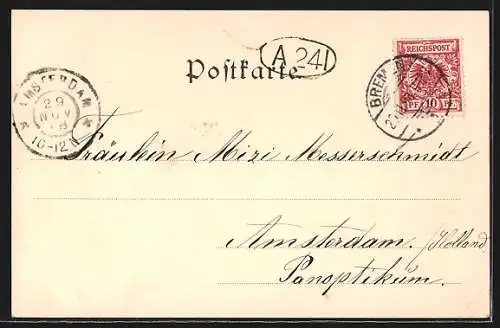 A 241
Postkarte.
REICHSPOST
PF 10 PF
BREMEN
AMSTERDAM
29
NOV
10-12
Fräulein Mizi Messerschmidt
Amsterdam. /Holland.
Panoptikum.